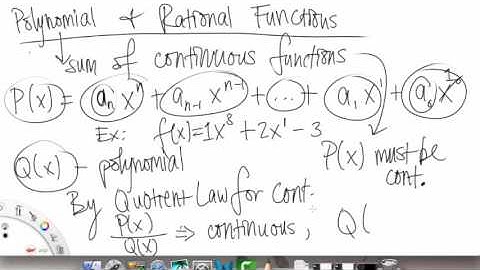 Polynomial & Rational Functions
↳ sum of continuous functions
P(x) = aₙxⁿ + aₙ₋₁xⁿ⁻¹ + ... + a₁x¹ + a₀x⁰
Ex: f(x)=1x⁸ + 2x¹ - 3
Q(x) - polynomial
P(x) must be cont.
By Quotient Law for Cont.
P(x)/Q(x) ⇒ continuous, Q(